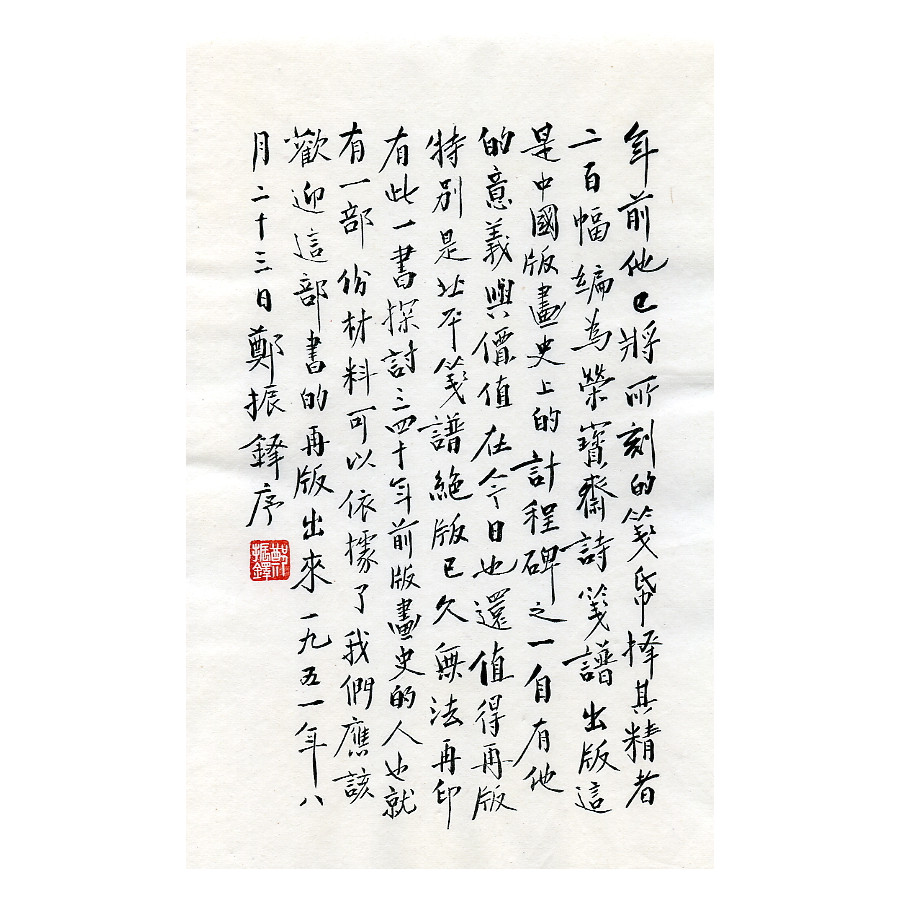 年前他已將所刻的箋帋擇其精者
二百幅編為榮寶齋詩箋譜出版這
是中國版畫史上的計程碑之一自有他
的意義與價值在今日也還值得再版
特别是北平箋譜絶版已久無法再印
有此一書探討三四十年前版畫史的人也就
有一部份材料可以依據了我們應該
歡迎這部書的再版出來一九五一年八
月二十三日鄭振鐸序
鄭振鐸